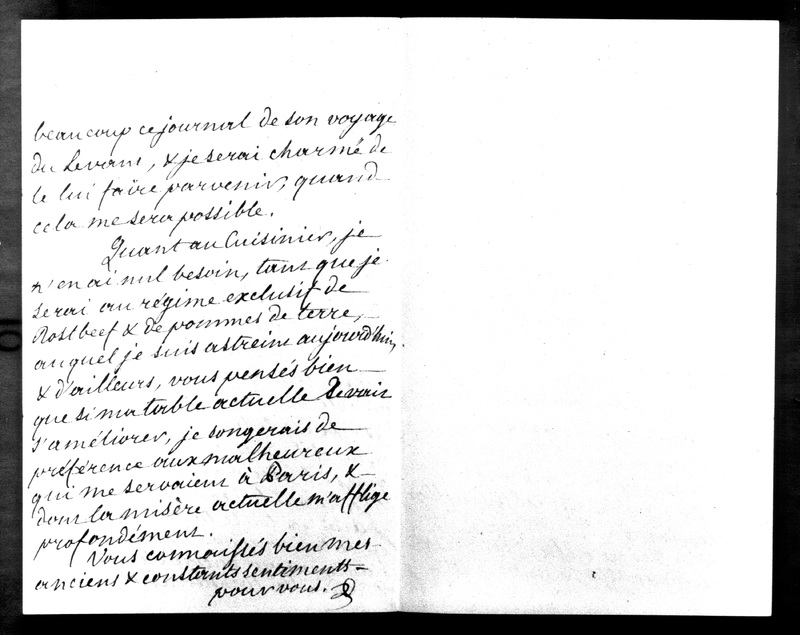 beaucoup ce journal de son voyage
du Levant, & je serai charmé de
le lui faire parvenir, quand
cela me sera possible.
Quant au Cuisinier, je
n'en ai nul besoin, tant que je
serai au régime exclusif de
Rostbeef & de pommes de terre,
auquel je suis astreint aujourdhui,
& d'ailleurs, vous pensés bien
que si ma table actuelle devait
s'améliorer, je songerais de
préférence aux malheureux
qui me servaient à Paris, &
dont la misère actuelle m'afflige
profondément.
Vous connaissés bien mes
anciens & constants sentiments
pour vous.